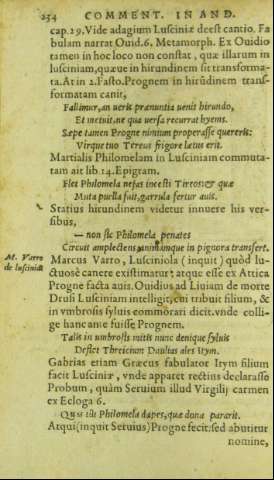 254 COMMENT. IN AND.
cap. 29. Vide adagium Lusciniæ deest cantio. Fa
bulam narrat Ouid. 6. Metamorph. Ex Ouidio
tamen in hoc loco non constat, quæ illarum in
lusciniam, quæue in hirundinem sit transforma-
ta. At in 2. Fasto. Prognem in hirūdinem trans-
formatam canit,
Fallimur, an ueris prænuntia uenit hirundo,
Et metuit, ne qua uersa recurrat hyems.
Sæpe tamen Progne nimium properasse quereris:
Virque tuo Tereus frigore lætus erit.
Martialis Philomelam in Lusciniam commuta-
tam ait lib. 14. Epigram.
Flet Philomela nefas incesti Tereos; & quæ
Muta puella fuit, garrula fertur auis.
Statius hirundinem videtur innuere his ver-
sibus,
— non sic Philomela penates
Circuit amplectens animamque in pignora transfert.
M. Varro
de luscinia
Marcus Varro, Lusciniola (inquit) quòd lu-
ctuosè canere existimatur, atque esse ex Attica
Progne facta auis. Ouidius ad Liuiam de morte
Drusi Lusciniam intelligit, cui tribuit filium, &
in vmbrosis syluis commorari dicit. vnde colli-
ge hanc ante fuisse Prognem.
Talis in umbrosis mitis nunc denique syluis
Deflet Threicium Daulias ales Itym.
Gabrias etiam Græcus fabulator Itym filium
facit Lusciniæ, vnde apparet rectius declarasse
Probum, quàm Seruium illud Virgilij carmen
ex Ecloga 6.
Quas illi Philomela dapes, quæ dona pararit.
Atqui (inquit Seruius) Progne fecit. sed abutitur
nomine,